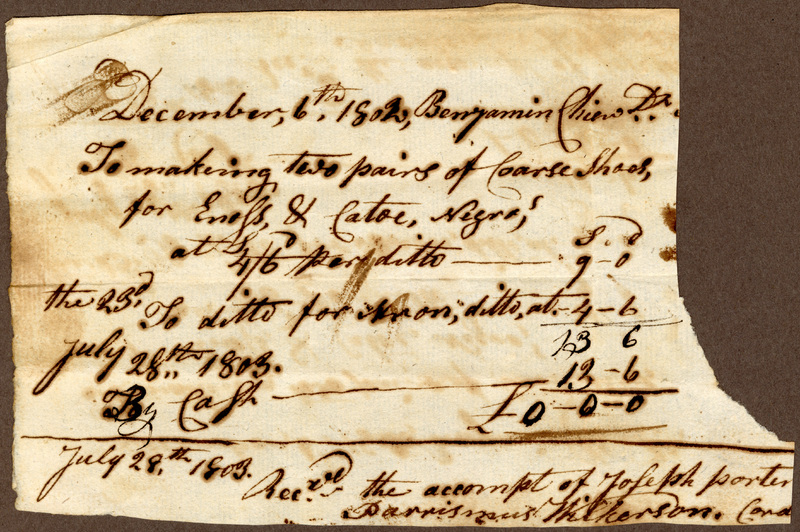 December, 6th, 1802, Benjamin Chew Dr.
To making two pairs of Coarse Shoes,
for Enoss, & Catoe, Negro,s
S. d
at 4/6 per ditto — 9-0
the 23d. To ditto for Aron, ditto, at - 4-6
13 6
July 28th 1803. 13-6
By Cash — £0-0-0
July 28,th 1803.
Rec.ved the accompt of Joseph porter
Parrismus Wilkerson. Cord